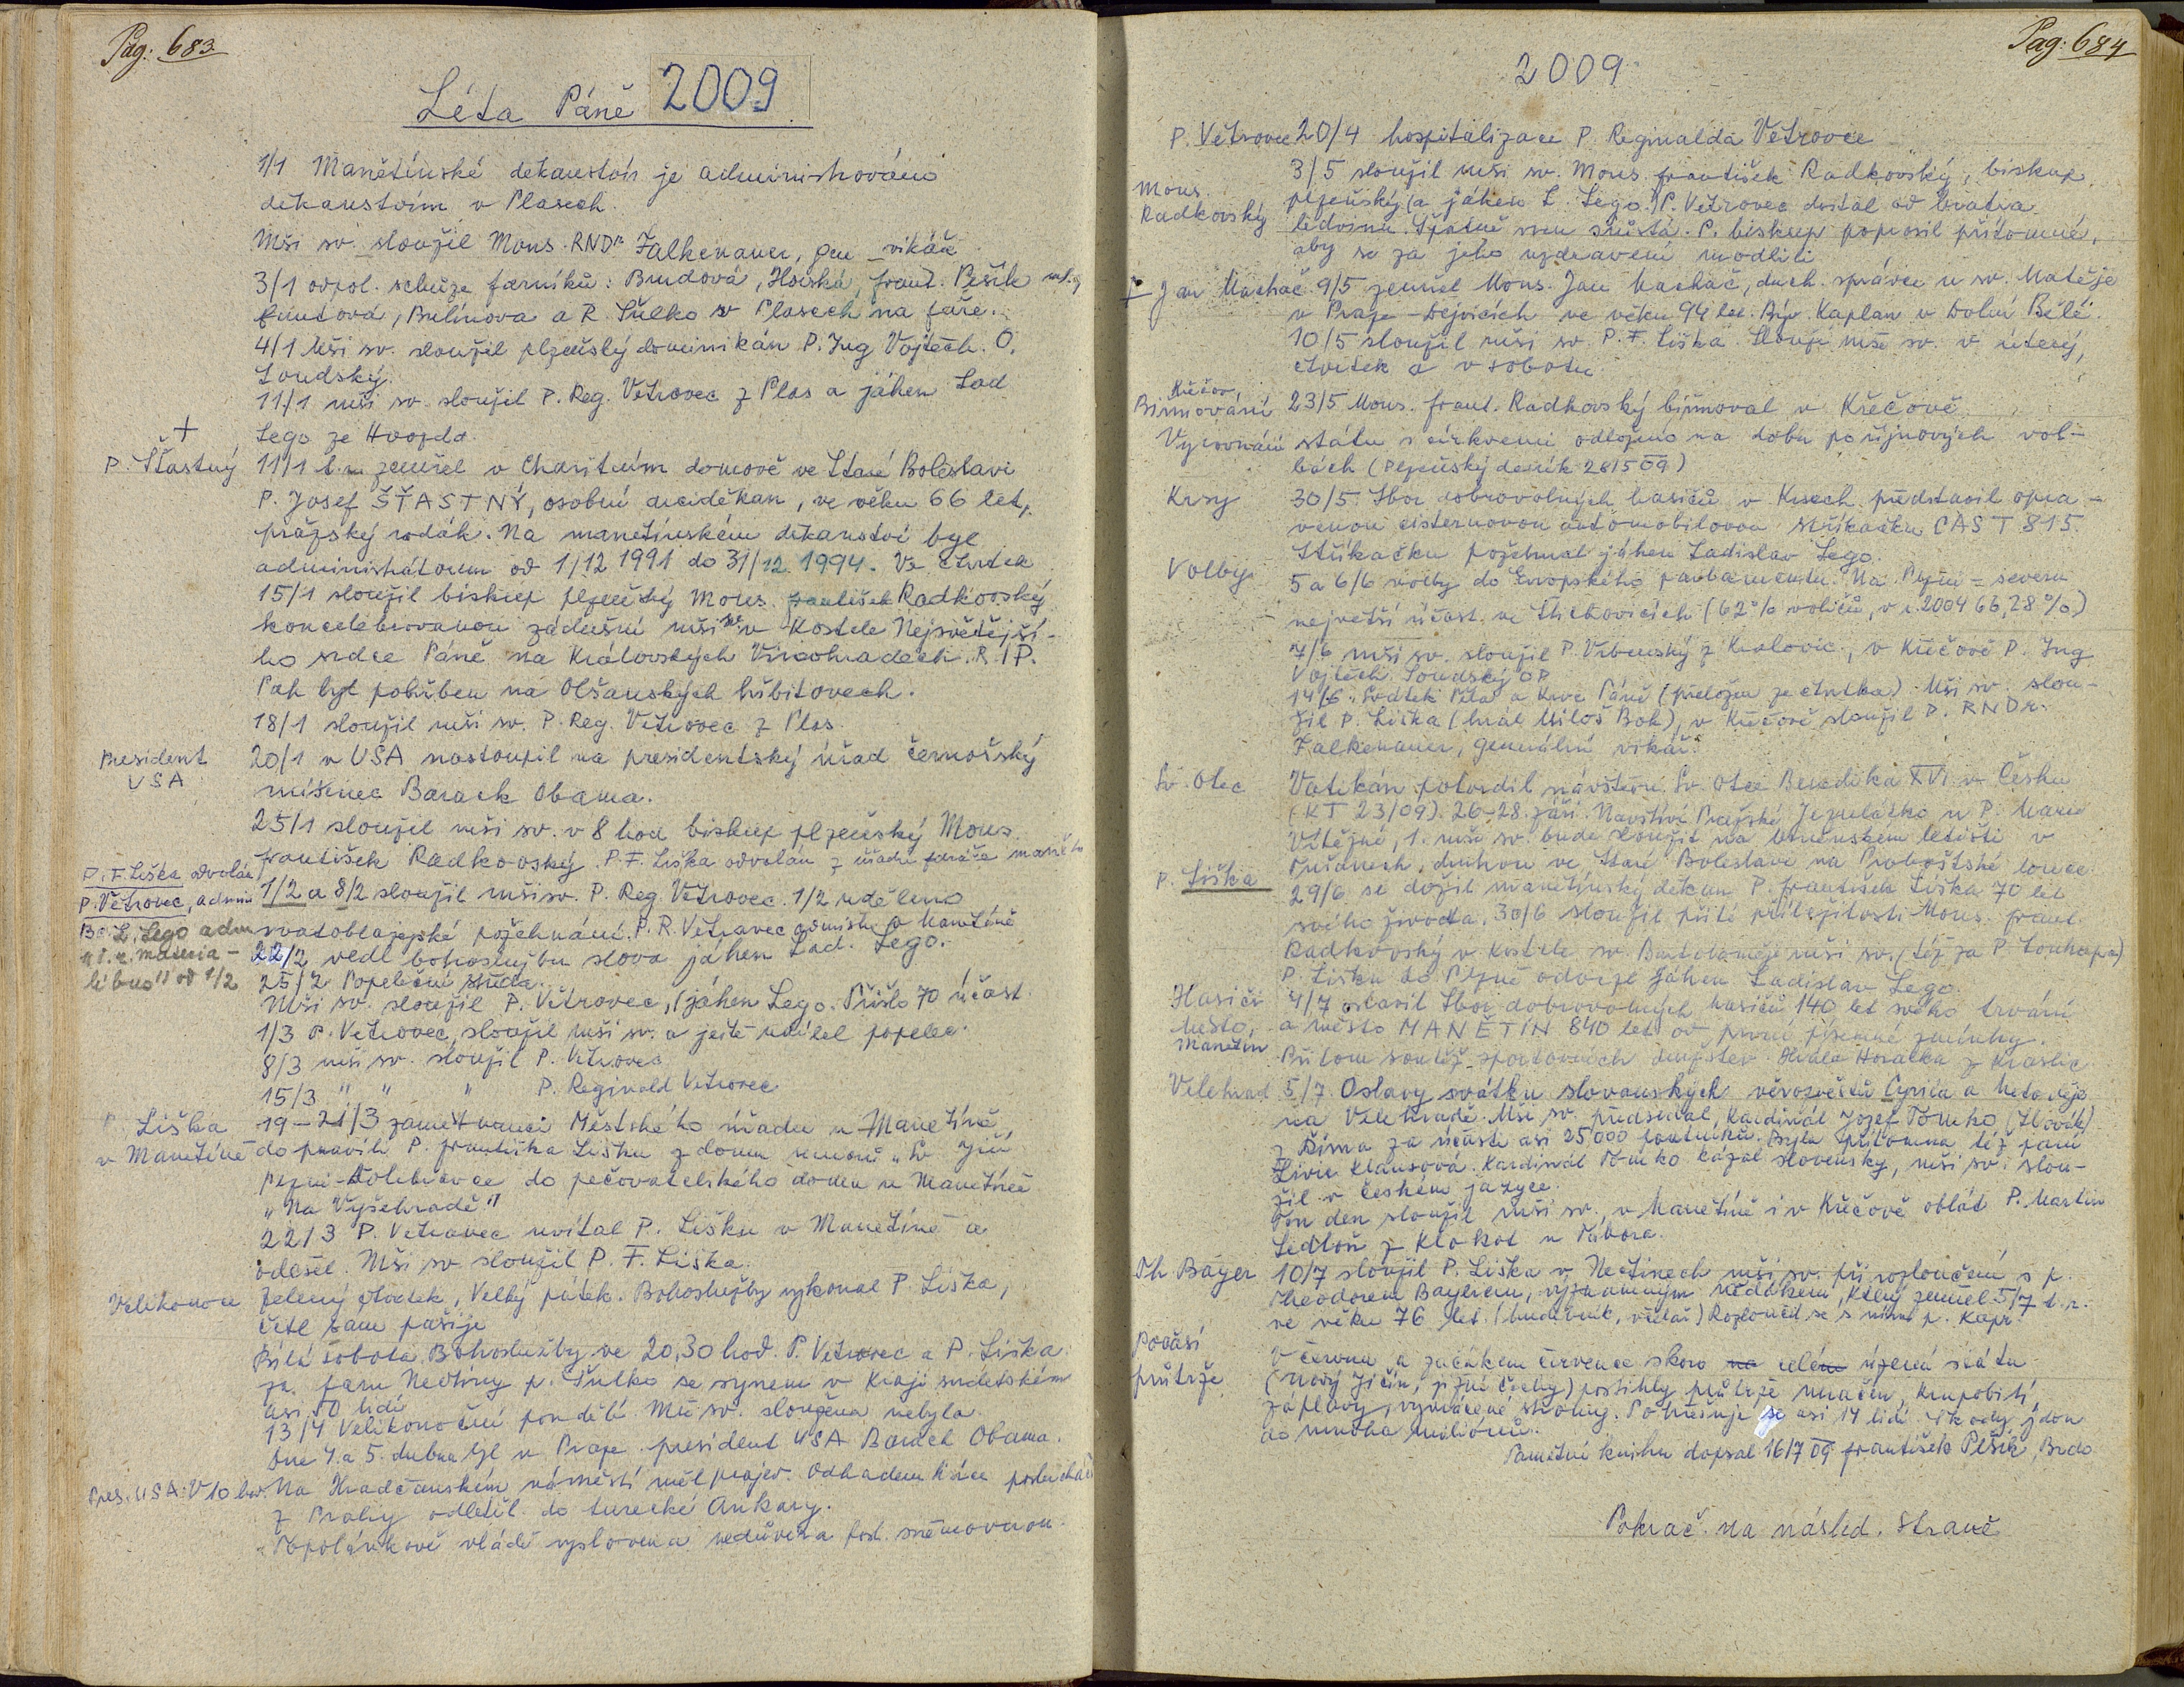 Pag: 683
Léta Páně 2009
1/1 Manětínské dekanství je administrováno
děkanstvím v Plasech.
Mši sv. sloužil Mons. RNDr Falkenauer, gen. vikář
3/1 odpol. schůze farníků: Brudová, Horská, Frant. Pešík ml.,
Bulínova a R. Šulko v Plasech na faře.
4/1 Mši sv. sloužil plzeňský dominikán P. Ing Vojtěch. O.
Soudský.
11/1 mši sv. sloužil P. Reg. Větrovec z Plas a jáhen Lad
Lego ze Hvozda.
+
P. Šťastný
11/1 t.r. zemřel v Charitním domově ve Staré Boleslavi
P. Josef ŠŤASTNÝ, osobní arciděkan, ve věku 66 let,
pražský rodák. Na manětínském děkanství byl
administrátorem od 1/12 1991 do 31/12 1994. Ve čtvrtek
15/1 sloužil biskup plzeňský Mons. František Radkovský
koncelebrovanou zádušní mši sv. v kostele Nejsvětější-
ho srdce Páně na Královských Vinohradech. R.I.P.
Pak byl pohřben na Olšanských hřbitovech.
18/1 sloužil mši sv. P. Reg. Větrovec z Plas.
President
USA
20/1 v USA nastoupil na presidentský úřad černošský
míšenec Barack Obama.
25/1 sloužil mši sv. v 8 hod biskup plzeňský Mons.
František Radkovský. P.F. Liška odvolán z úřadu faráře
P. F. Liška odvolán
P. Větrovec, admin
1/2 a 8/2 sloužil mši sv. P. Reg. Větrovec. 1/2 uděleno
svatoblažejské požehnání. P. R. Větrovec administr. v Manětíně
L. Lego adm
"i.r. materia-
libus" od 1/2
22/2 vedl bohoslužbu slova jáhen Lad. Lego.
25/2 Popeleční středa.
Mši sv. sloužil P. Větrovec, (jáhen Lego. Přišlo 70 účast.
1/3 P. Větrovec, sloužil mši sv. a ještě udílel popelec.
8/3 mši sv. sloužil P. Větrovec
15/3 " " " P. Reginald Větrovec
P. Liška
v Manětíně
19-21/3 zaměstnanci Městského úřadu v Manětíně,
dopravili P. Františka Lišku z domu seniorů "Sv. Jiří
Plzni-Doubravce do pečovatelského domu v Manětíně
"Na Vyšehradě"
22/3 P. Větrovec uvítal P. Lišku v Manětíně a
odešel. Mši sv. sloužil P. F. Liška.
Velikonoce
Zelený čtvrtek, Velký pátek. Bohoslužby vykonal P. Liška,
četl sám pašije
Bílá sobota. Bohoslužby ve 20,30 hod. P. Větrovec a P. Liška.
za faru Nečtiny p. Šulko se synem v kroji sudetském
asi 50 lidí
13/4 Velikonoční pondělí. Mše sv. sloužena nebyla.
Dne 4. a 5. dubna byl v Praze president USA Barack Obama.
Pres. USA: V 10 hod. Na Hradčanském náměstí měl projev. Odhadem tisíce posluchačů
z Prahy odletěl do turecké Ankary.
Topolánkově vládě vyslovena nedůvěra posl. sněmovnou.
Pag: 684
2009
P. Větrovec 20/4 hospitalizace P. Reginalda Větrovce
Mons.
Radkovský
3/5 sloužil mši sv. Mons. František Radkovský, biskup
plzeňský (a jáhen L. Lego.) P. Větrovec dostal od bratra
ledvinu. Špatně srůstá. P. biskup poprosil přítomné,
aby se za jeho uzdravení modlili.
+ Jan Machač 9/5 zemřel Mons. Jan Machač, duch. správce u sv. Matěje
v Praze-Dejvicích ve věku 94 let. Býv. kaplan v Dolní Bělé.
10/5 sloužil mši sv. P. F. Liška. Slouží mše sv. v úterý,
čtvrtek a v sobotu.
Křečov,
Biřmování
23/5 Mons. Frant. Radkovský biřmoval v Křečově.
Vyrovnání státu s církvemi odloženo na dobu po říjnových vol-
bách (Plzeňský deník 28/5 09)
Krsy
30/5 Sbor dobrovolných hasičů v Krsech představil opra-
venou cisternovou automobilovou stříkačku CAS T 815.
Stříkačku požehnal jáhen Ladislav Lego.
Volby
5 a 6/6 volby do Evropského parlamentu. Na Plzni-severu
největší účast ve Štichovicích (62% voličů, v r. 2004 66,28%)
7/6 mši sv. sloužil P. Vrbenský z Kralovic, v Křečově P. Ing
Vojtěch Soudský OP
14/6. Svátek Těla a Krve Páně (přeložen ze čtvrtka). Mši sv. slou-
žil P. Liška (hrál Miloš Bok), v Křečově sloužil P. RNDr.
Falkenauer, generální vikář.
Sv. Otec
Vatikán potvrdil návštěvu Sv. Otce Benedikta XVI v Česku
(KT 23/09). 26-28. září. Navštíví Pražské Jezulátko u P. Marie
Vítězné, 1. mši sv. bude sloužit na brněnském letišti v
Tuřanech, druhou ve Staré Boleslavi na Proboštské louce.
P. Liška
29/6 se dožil manětínský děkan P. František Liška 70 let
svého života. 30/6 sloužil při té příležitosti Mons. Frant.
Radkovský v kostele sv. Bartoloměje mši sv. (též za P. )
P. Lišku do Plzně odvezl jáhen Ladislav Lego.
Hasiči
Město,
Manětín
4/7 oslavil Sbor dobrovolných hasičů 140 let svého trvání
a město MANĚTÍN 840 let od první písemné zmínky.
Přitom soutěž sportovních družstev. Hrála Horalka z Kraslic
Velehrad
5/7 Oslavy svátku slovanských věrozvěstů Cyrila a Metoděje
na Velehradě. Mši sv. předsedal, Kardinál Jozef Tomko (Slovák)
z Říma za účasti asi 25000 poutníků. Byla přítomna též paní
Livie Klausová. Kardinál Tomko kázal slovensky, mši sv. slou-
žil v českém jazyce.
Ten den sloužil mši sv. v Manětíně i v Křečově oblát P. Martin
Sedloň z Klokot u Tábora.
Th Bayer
10/7 sloužil P. Liška v Nečtinech mši sv. při rozloučení s p.
Theodorem Bayerem, významným rodákem, který zemřel 5/7 t.r.
ve věku 76 let. (hudebník, včelař) Rozloučil se s ním p. Kapr.
Počasí
průtrže
V červnu a začátkem července skoro na celém území státu
(Nový Jičín, jižní Čechy) postihly průtrže mračen, krupobití,
záplavy, vyvrácené stromy. Pohřešuje se asi 14 lidí. Škody jdou
do mnoha miliónů.
Pamětní knihu dopsal 16/7 09 František Pešík, Brdo
Pokrač. na násled. straně